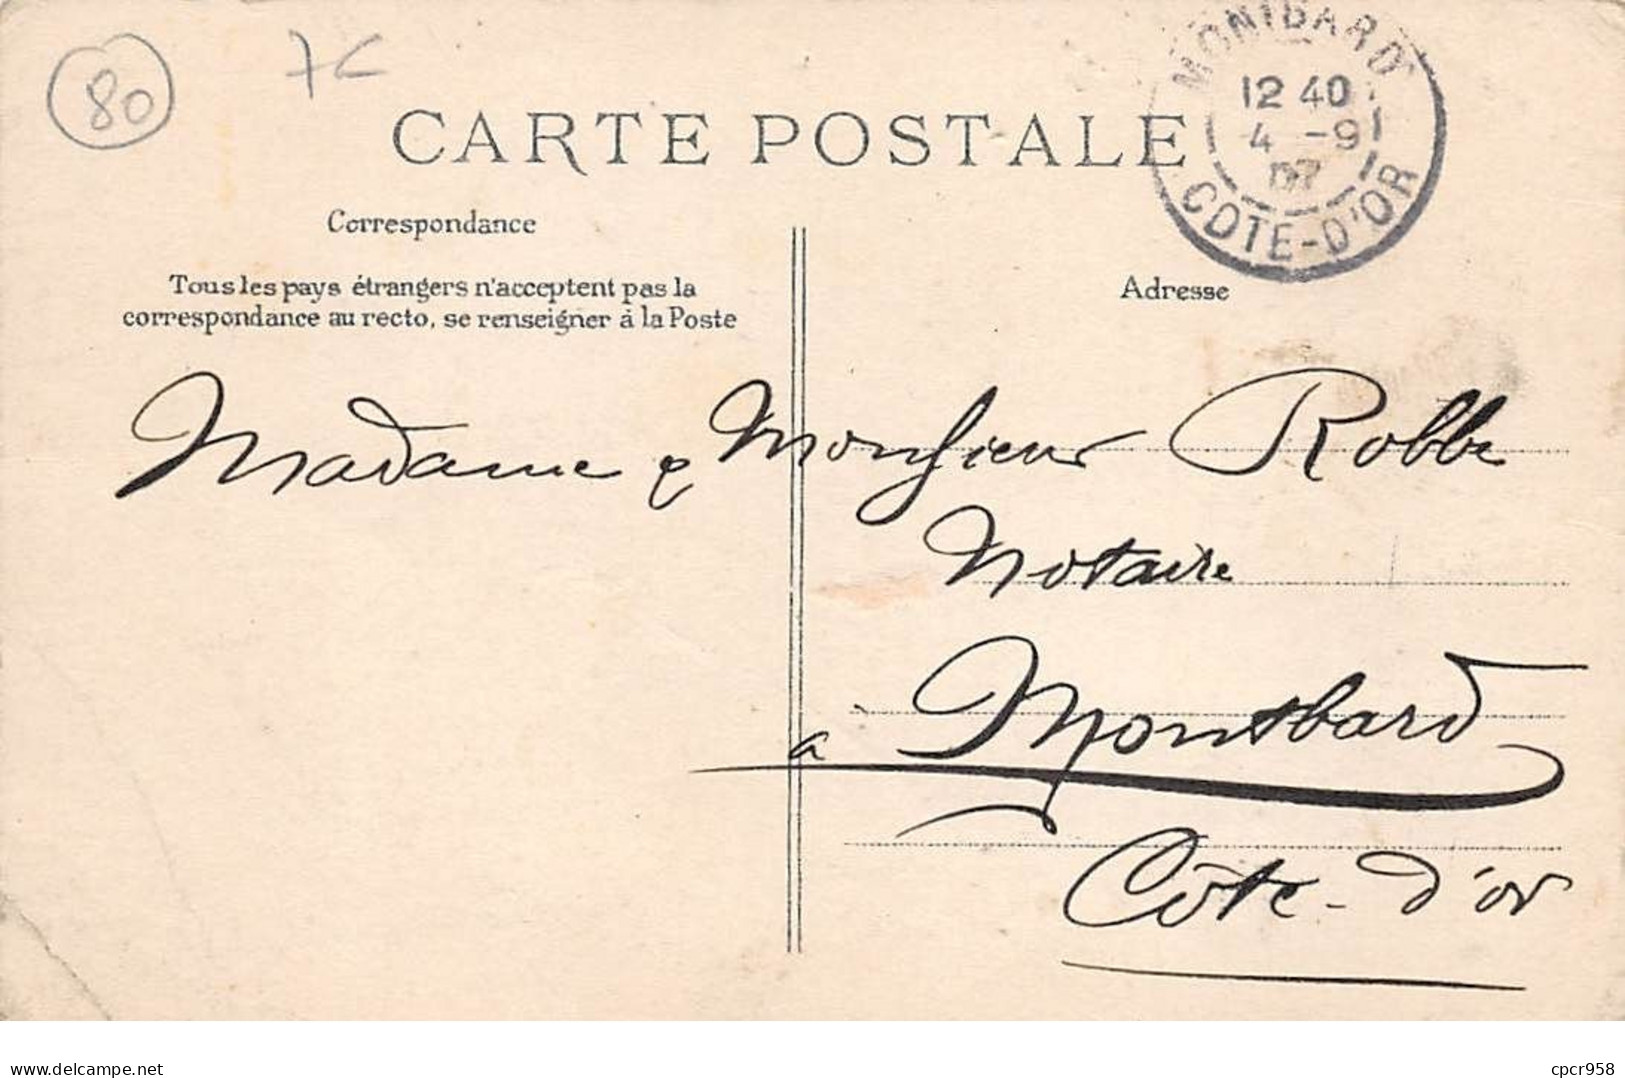 80
7€
CARTE POSTALE
MONTBARD
12 40
4 -9
07
COTE-D'OR
Correspondance
Tous les pays étrangers n'acceptent pas la
correspondance au recto, se renseigner à la Poste
Adresse
Madame & Monsieur Robbe
Notaire
a Montbard
Côte-d'or
delcampe.net
cpcr958